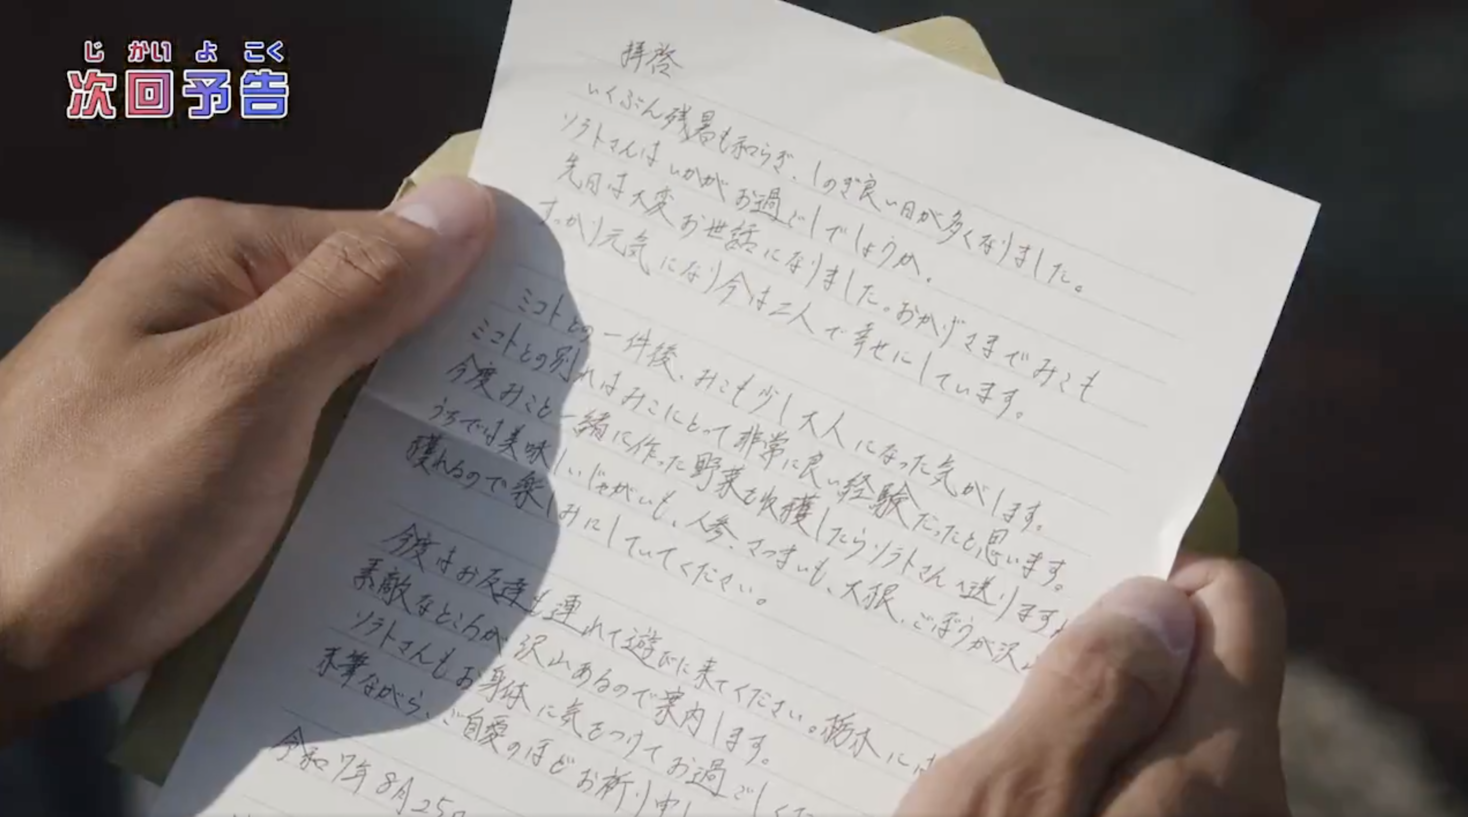 じかいよこく
次回予告
拝啓
いくぶん残暑も和らぎ、しのぎ良い日が多くなりました。
ソラトさんはいかがお過ごしでしょうか。
先日は大変お世話になりました。おかげさまでみこも
すっかり元気になり今は二人で幸せにしています。
ミコトとの一件後、みこも少し大人になった気がします。
ミコトとの別れはみこにとって非常に良い経験だったと思います。
今度みこと一緒に作った野菜を収穫したらソラトさんへ送りますね
うちでは美味しいじゃがいも、人参、さつまいも、大根、ごぼうが沢山
獲れるので楽しみにしていてください。
今度はお友達も連れて遊びに来てください。栃木には
素敵なところが沢山あるので案内します。
ソラトさんもお身体に気をつけてお過ごしくだ
末筆ながら、ご自愛のほどお祈り申し
令和7年8月25日